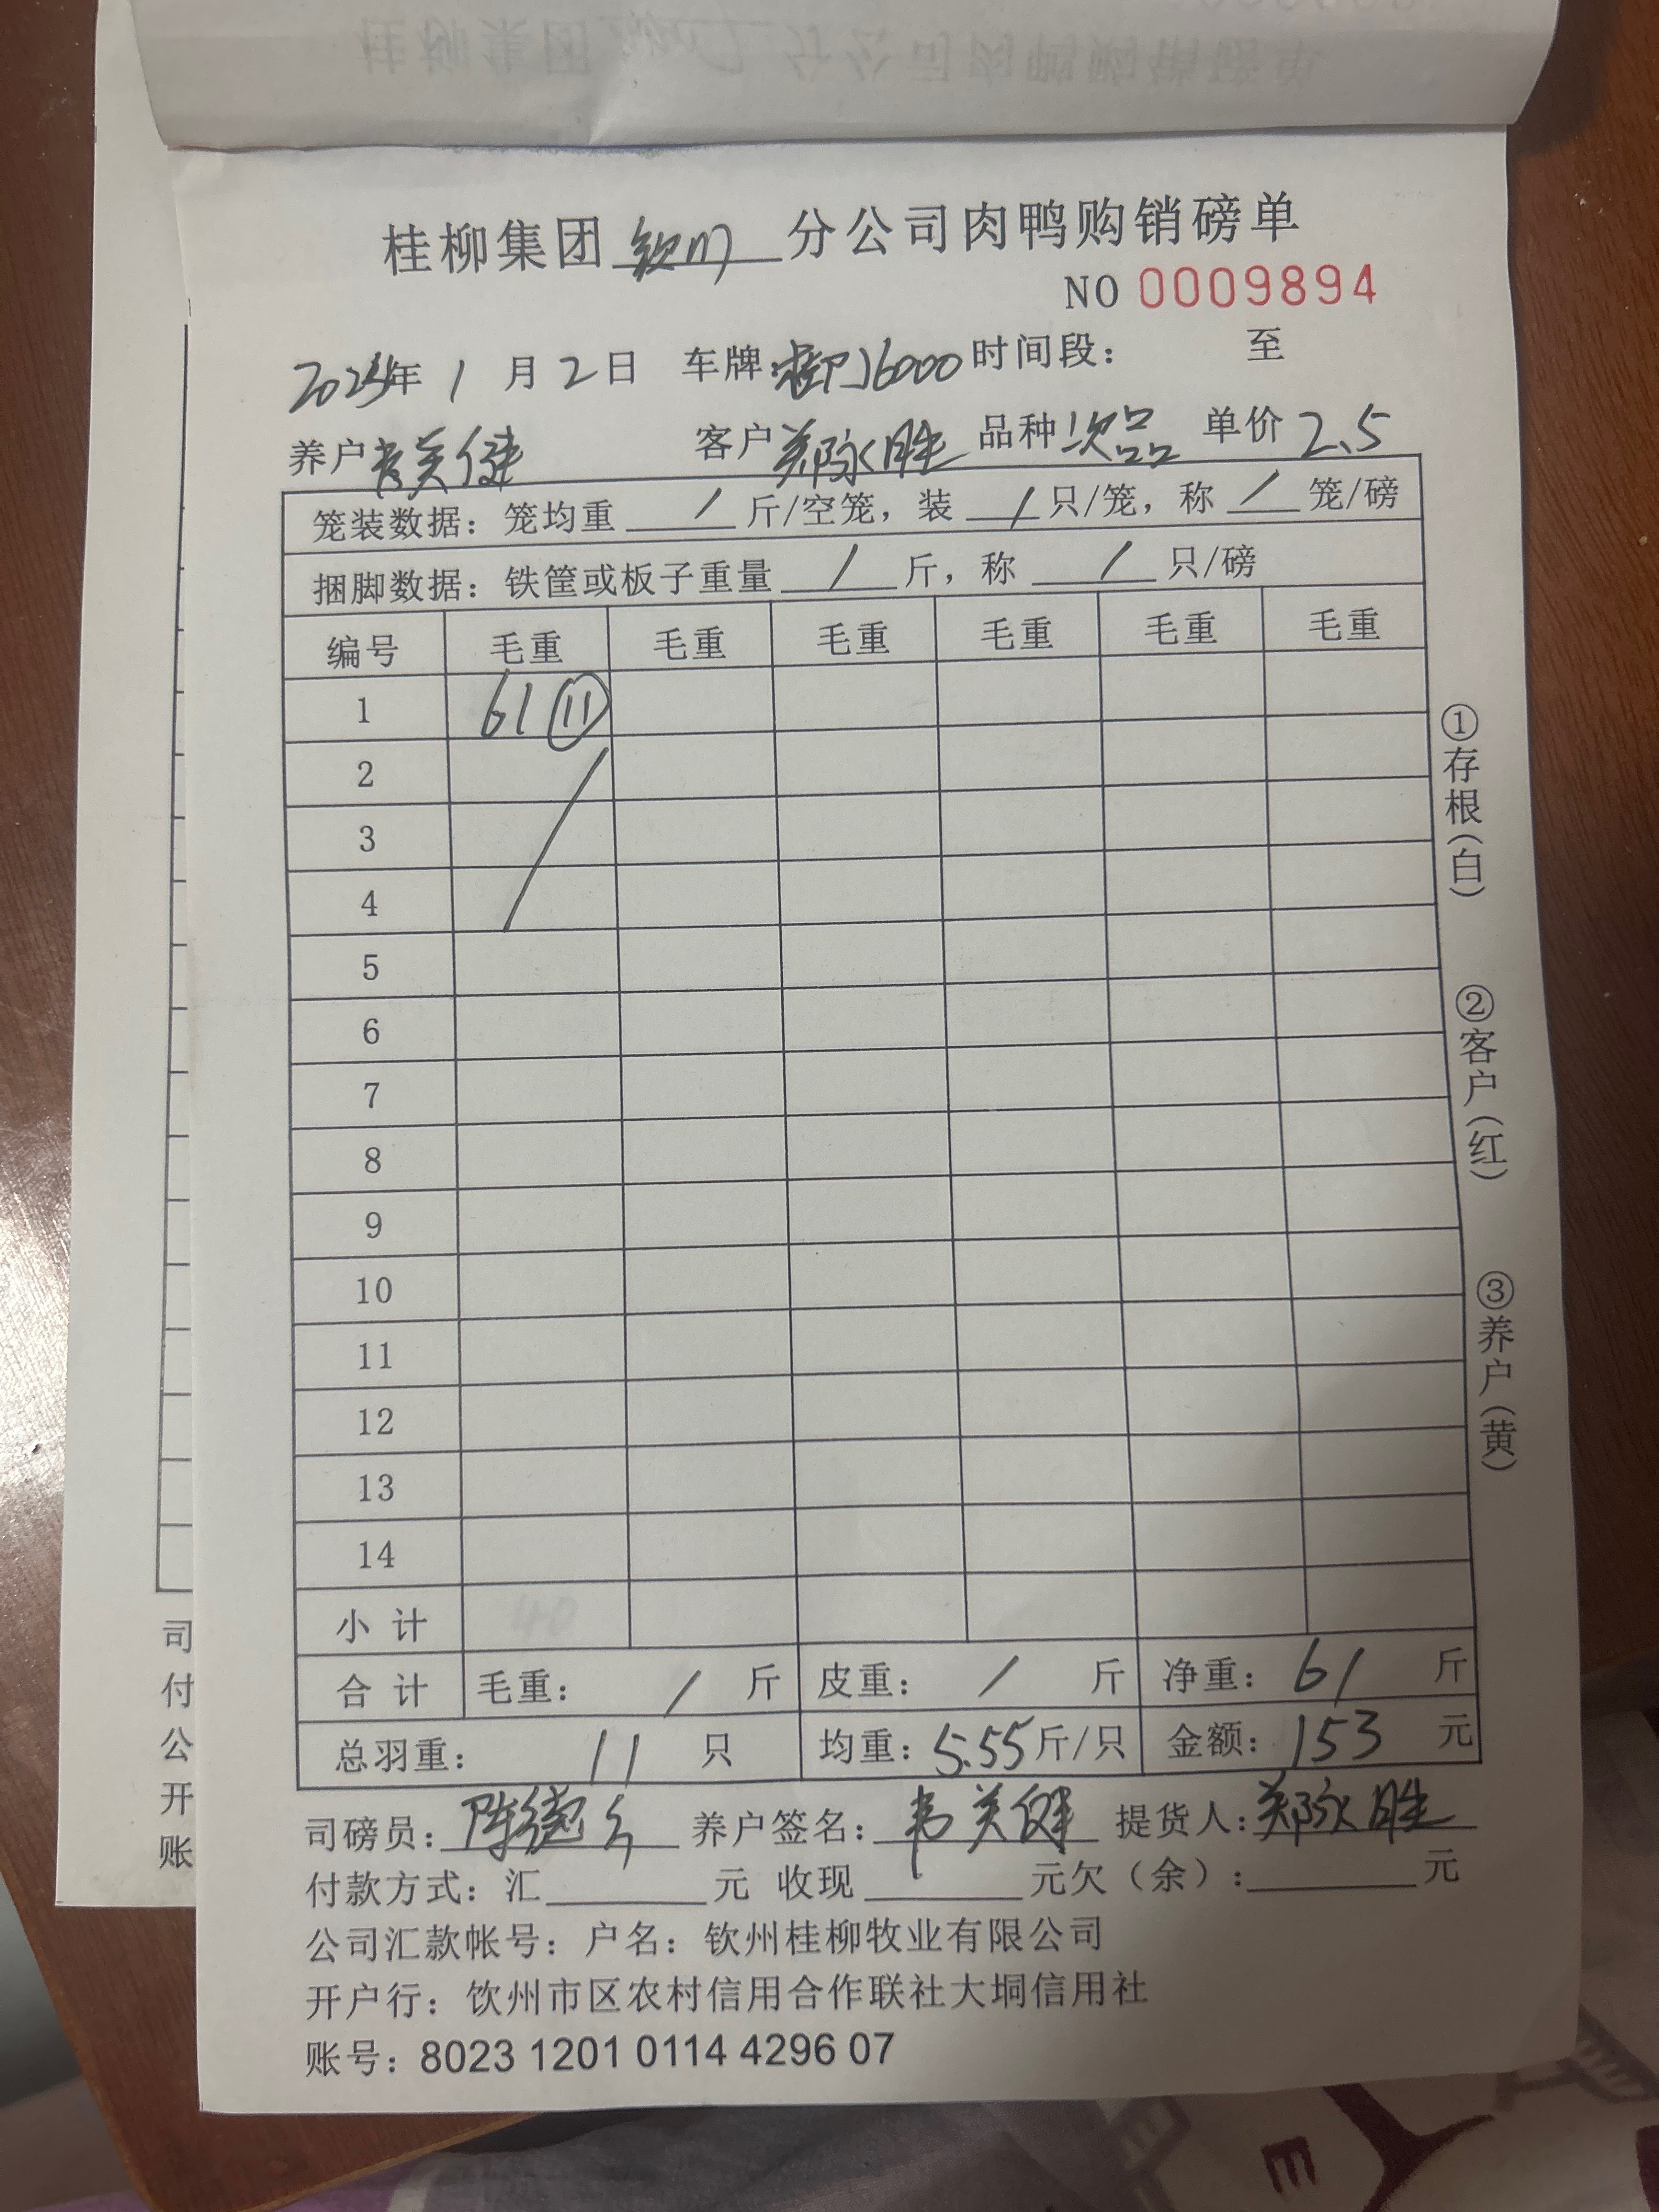 桂柳集团 钦州 分公司肉鸭购销磅单
NO 0009894
年 1 月 2 日 车牌: 16000 时间段: 至
养户 韦美健 客户 郑永胜 品种 次品 单价 2.5
笼装数据: 笼均重 / 斤/空笼, 装 / 只/笼, 称 / 笼/磅
捆脚数据: 铁筐或板子重量 / 斤, 称 / 只/磅
编号 毛重 毛重 毛重 毛重 毛重 毛重
1 61 ⑪
2
3
4
5
6
7
8
9
10
11
12
13
14
小 计 40
合 计 毛重: / 斤 皮重: / 斤 净重: 61 斤
总羽重: 11 只 均重: 5.55 斤/只 金额: 153 元
司磅员: 陈 养户签名: 韦美健 提货人: 郑永胜
付款方式: 汇 元 收现 元欠(余): 元
公司汇款帐号: 户名: 钦州桂柳牧业有限公司
开户行: 饮州市区农村信用合作联社大垌信用社
账号: 8023 1201 0114 4296 07
①存根(白)
②客户(红)
③养户(黄)
司
付
公
开
账